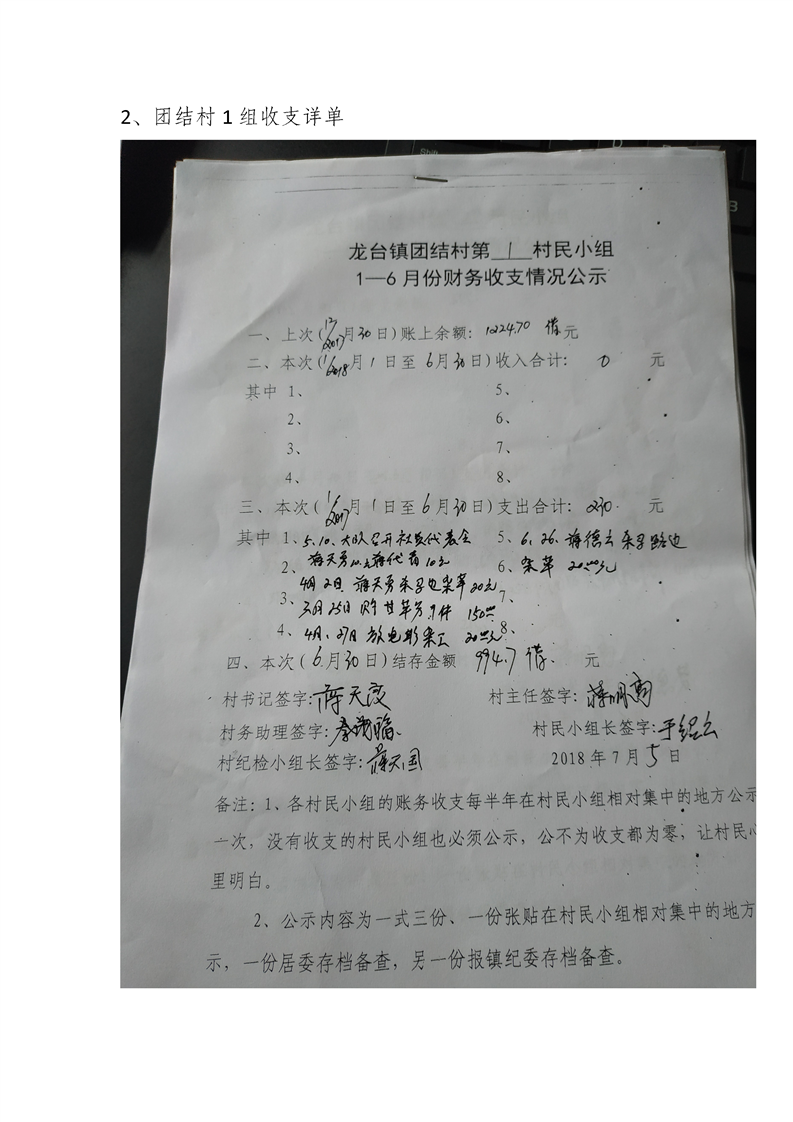 2、团结村 1 组收支详单
龙台镇团结村第 1 村民小组
1—6 月份财务收支情况公示
一、上次(2017 12月30日)账上余额: 1224.70 借元
二、本次(2018 1月1日至6月30日)收入合计: 0 元
其中 1、 5、
2、 6、
3、 7、
4、 8、
三、本次(2017 月1日至6月30日)支出合计: 230. 元
其中 1、5.10、大队召开社员代表会 5、6.26、蒋德云 路边
2、蒋天勇10元蒋代 10元 6、 草 20.00元
4月2日 蒋天勇 边 草 20元
3、3月25日 购 7、
件 150
4、4月、27日放电影 20.00元 8、
四、本次(6月30日)结存金额 994.7 借. 元
村书记签字: 蒋天 村主任签字: 蒋明
村务助理签字: 秦 村民小组长签字: 于绍云
村纪检小组长签字: 蒋天国 2018 年 7 月 5 日
备注: 1、各村民小组的账务收支每半年在村民小组相对集中的地方公示
一次, 没有收支的村民小组也必须公示, 公不为收支都为零, 让村民心
里明白。
2、公示内容为一式三份、一份张贴在村民小组相对集中的地方
示, 一份居委存档备查, 另一份报镇纪委存档备查。